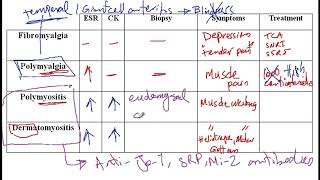 temporal / Giant cell arteritis → Blindness
ESR CK Biopsy Symptoms Treatment
Fibromyalgia – – – Depression "tender point" TCA SNRI SSRI
Polymyalgia ↑ – – Muscle pain
Polymyositis ↑ ↑ endomysial Muscle wasting
Dermatomyositis ↑ ↑ Heliotrope, Malar Gottron
→ Anti-Jo-1, SRP, Mi-2 antibodies